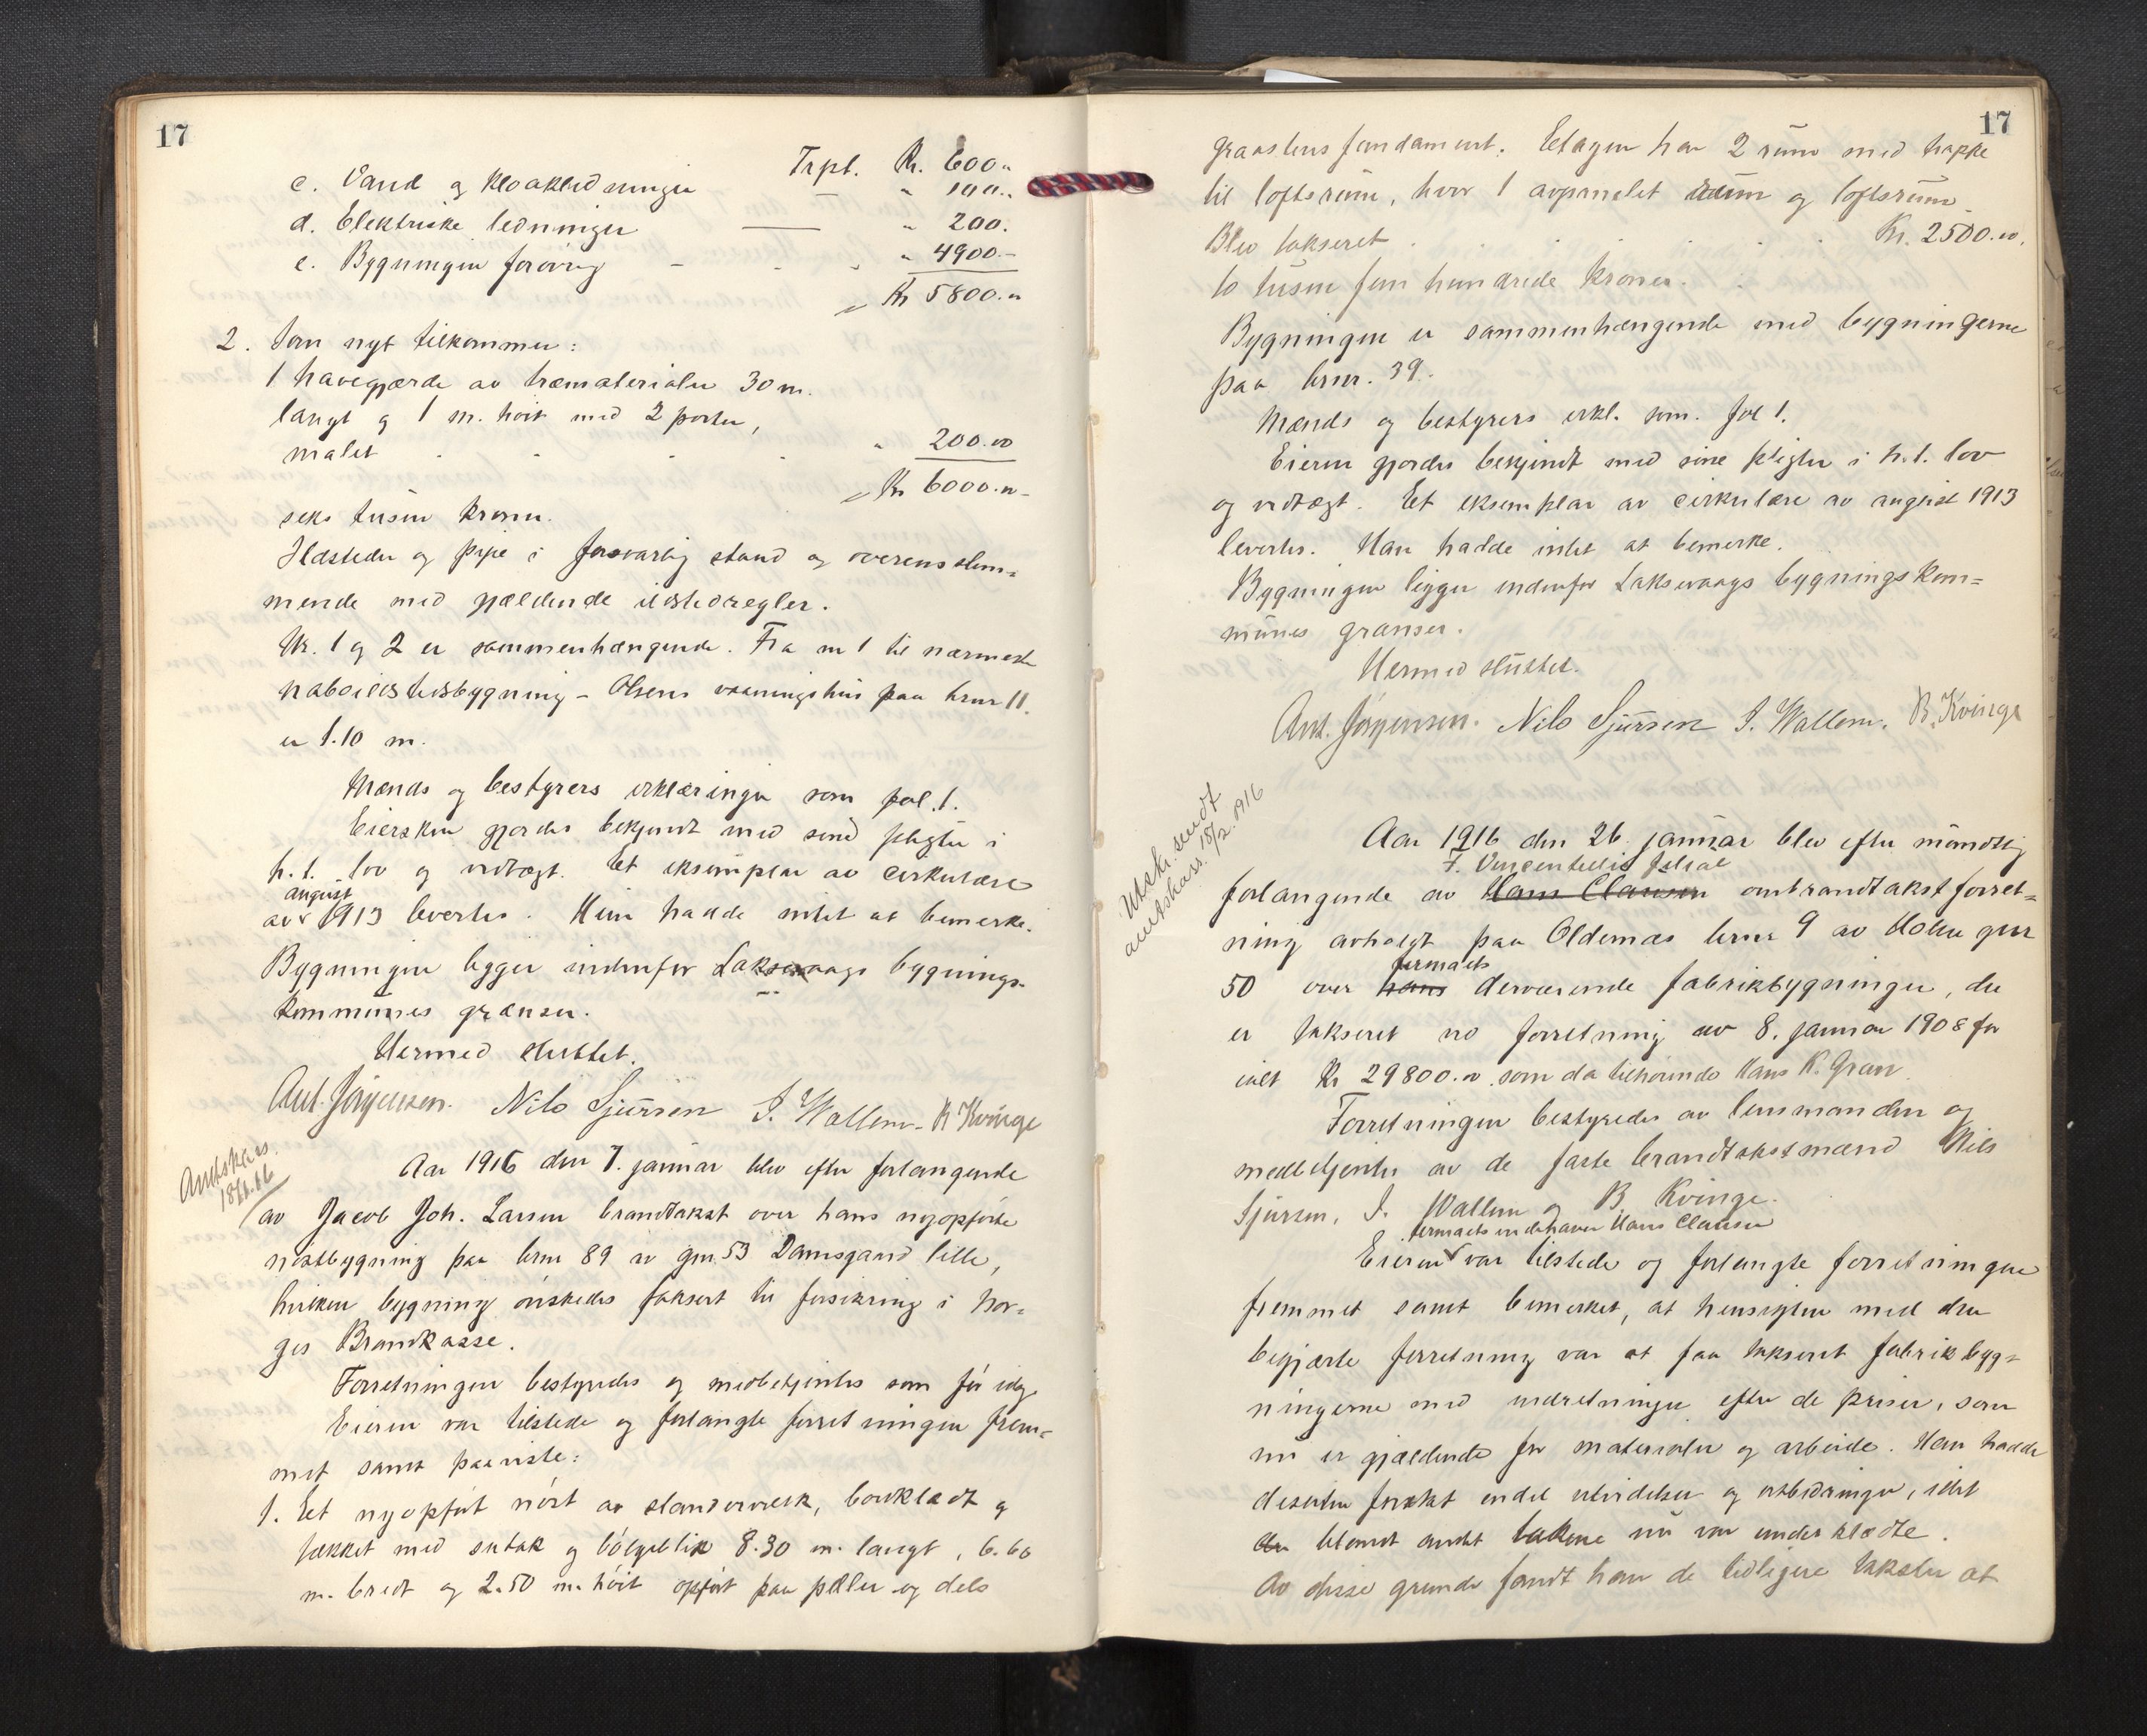 17
Trpt. Kr. 600.
c. Vand og kloakledninger — " 100..
d. Elektriske ledninger — " 200.
e. Bygningen forøvrig - - " " 4900.-
Kr 5800.
2. Som nyt tilkommer:
1 havegjærde av træmaterialer 30 m.
langt og 1 m. høit med 2 porter,
malet . . . " 200.00
Kr 6000.
seks tusen kroner.
Ildsteder og pipe i forsvarlig stand og overensstem=
mende med gjældende ildstedregler.
Nr. 1 og 2 er sammenhængende. Fra nr 1 til nærmeste
naboildstedsbygning - Olsens vaaningshus paa brnr 11.
er 1.10 m.
Mænds og bestyrers erklæringer som fol. 1.
Eiersken gjordes bekjendt med sine pligter i
h.t. lov og vedtægt. Et eksemplar av cirkulære
august
av 1913 levertes. Hun hadde intet at bemerke.
Bygningen ligger indenfor Laksevaags bygnings-
kommunes grænser.
Hermed sluttet.
Ant. Jørgensen. Nils Sjursen J. Wallem. B Kvinge
Amtskars.
18/1.16
Aar 1916 den 7. januar blev efter forlangende
av Jacob Joh. Larsen brandtakst over hans nyopførte
nøstbygning paa brnr 89 av gnr 53 Damsgaard lille,
hvilken bygning ønskedes taksert til forsikring i Nor=
ges Brandkasse.
Forretningen bestyredes og medbetjentes som før idag.
Eieren var tilstede og forlangte forretningen frem=
met samt paaviste:
1. Et nyopført nøst av standerverk, bordklædt og
tækket med sutak og bølgeblik 8.30 m. langt, 6.60
m. bredt og 2.50 m. høit opført paa pæler og dels
17
graastens fundament. Etagen har 2 rum med trappe
til loftsrum, hvor 1 avpanelet rum og loftsrum
Blev taksert . . . . . . Kr. 2500.00.
to tusen fem hundrede kroner.
Bygningen er sammenhængende med bygningerne
paa brnr. 39.
Mænds og bestyrers erkl. som fol 1.
Eieren gjordes bekjendt med sine pligter i h.t. lov
og vedtægt. Et eksemplar av cirkulære av august 1913
levertes. Han hadde intet at bemerke.
Bygningen ligger indenfor Laksevaags bygningskom=
munes grænser.
Hermed sluttet.
Ant. Jørgensen. Nils Sjursen J. Wallem. B. Kvinge
Utskr. sendt
amtskars. 18/2. 1916
Aar 1916 den 26. januar blev efter mundtlig
forlangende av Hans Clausen ombrandtakstforret=
ning avholdt paa Oldernæs brnr 9 av Holen gnr
firmaets
50 over hans derværende fabrikbygninger, der
er taksert ved forretning av 8. januar 1908 for
ialt Kr 29800.00 som da tilhørende Hans K. Gran.
Forretningen bestyredes av lensmanden og
medbetjentes av de faste brandtakstmænd Nils
Sjursen, J. Wallem og B Kvinge.
firmaets indehaver Hans Clausen
Eieren var tilstede og forlangte forretningen
fremmet samt bemerket, at hensigten med den
begjærte forretning var at faa taksert fabrikbyg=
ningerne med indretninger efter de priser, som
nu er gjældende for materialer og arbeide. Han hadde
desuten foretat endel utvidelser og utbedringer, idet
blandt andet takene nu var underklædte.
Av disse grunde fandt han de tidligere takster at